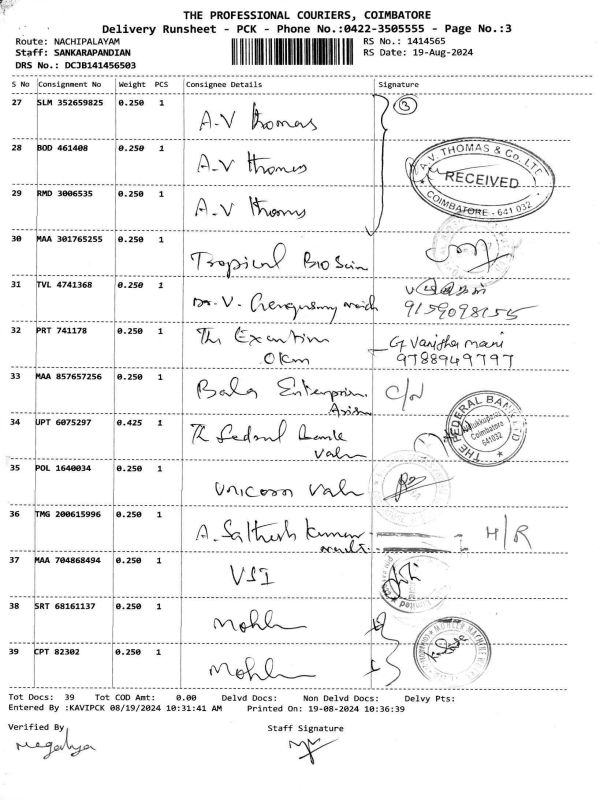 THE PROFESSIONAL COURIERS, COIMBATORE
Delivery Runsheet - PCK - Phone No.:0422-3505555 - Page No.:3
Route: NACHIPALAYAM RS No.: 1414565
Staff: SANKARAPANDIAN RS Date: 19-Aug-2024
DRS No.: DCJB141456503
S No Consignment No Weight PCS Consignee Details Signature
27 SLM 352659825 0.250 1 A.V Thomas 3
28 BOD 461408 0.250 1 A.V Thomas
A.V. THOMAS & Co. LTD.
RECEIVED
COIMBATORE - 641 032
29 RMD 3006535 0.250 1 A.V Thomas
30 MAA 301765255 0.250 1 Tropical Bio
31 TVL 4741368 0.250 1 Dr. V.
9159098155
32 PRT 741178 0.250 1 The
OKM
G Vanitha mani
9788949797
33 MAA 857657256 0.250 1 Bala Enterprises
34 UPT 6075297 0.425 1 The Federal Bank
THE FEDERAL BANK LTD
Coimbatore
641032
35 POL 1640034 0.250 1 Unicorn
36 TMG 200615996 0.250 1 A. Sathish Kumar H/R
37 MAA 704868494 0.250 1 VSI
38 SRT 68161137 0.250 1
39 CPT 82302 0.250 1
Tot Docs: 39 Tot COD Amt: 0.00 Delvd Docs: Non Delvd Docs: Delvy Pts:
Entered By :KAVIPCK 08/19/2024 10:31:41 AM Printed On: 19-08-2024 10:36:39
Verified By Staff Signature